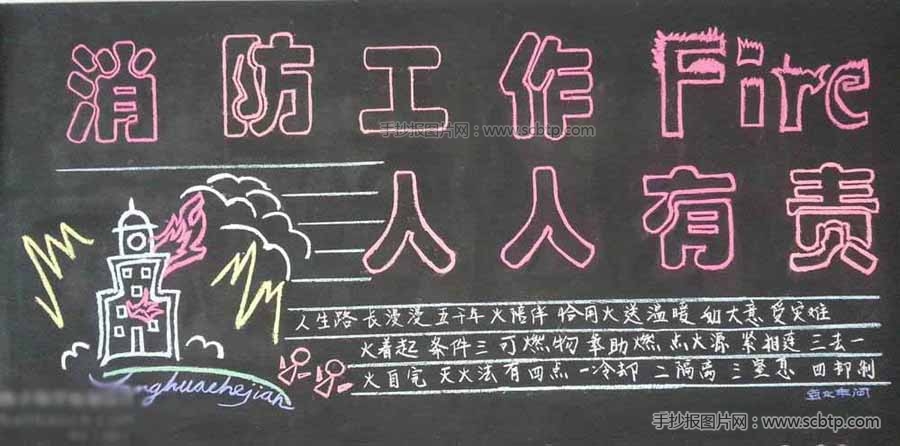 消防工作 Fire
手抄报图片网:www.scbtp.com
人人有责
人生路长漫漫 五千年火陪伴 恰用火送温暖 如大意受灾难
火着起 条件三 可燃物 幸助燃 点火源 紧相连 三去一
火自完 灭火法有四点 一冷却 二隔离 三窒息 四抑制
手抄报图片网:www.scbtp.com